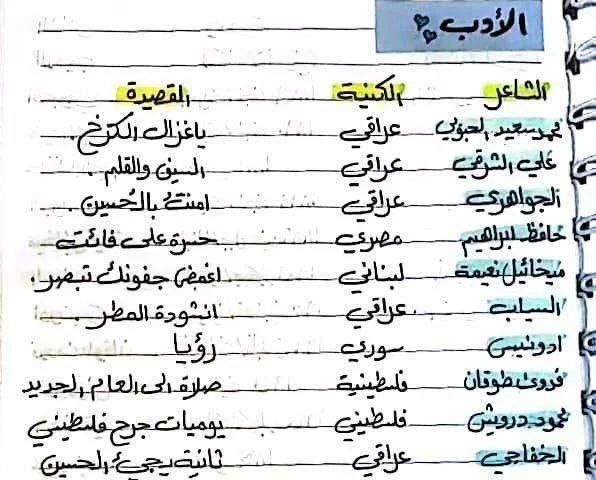 الأدب
الشاعر الكنية القصيدة
محمد سعيد الحبوبي عراقي ياغزال الكرخ.
علي الشرقي عراقي السيف والقلم.
الجواهري عراقي امنتُ بالحُسين.
حافظ ابراهيم مصري حسرة على فائت
ميخائيل نعيمة لبناني اغمض جفونك تبصر.
السياب عراقي انشودة المطر.
ادونيس سوري رؤيا
فدوى طوقان فلسطينية صلاة الى العام الجديد
محمود درويش فلسطيني يوميات جرح فلسطيني
الخفاجي عراقي ثانية يجيء الحسين